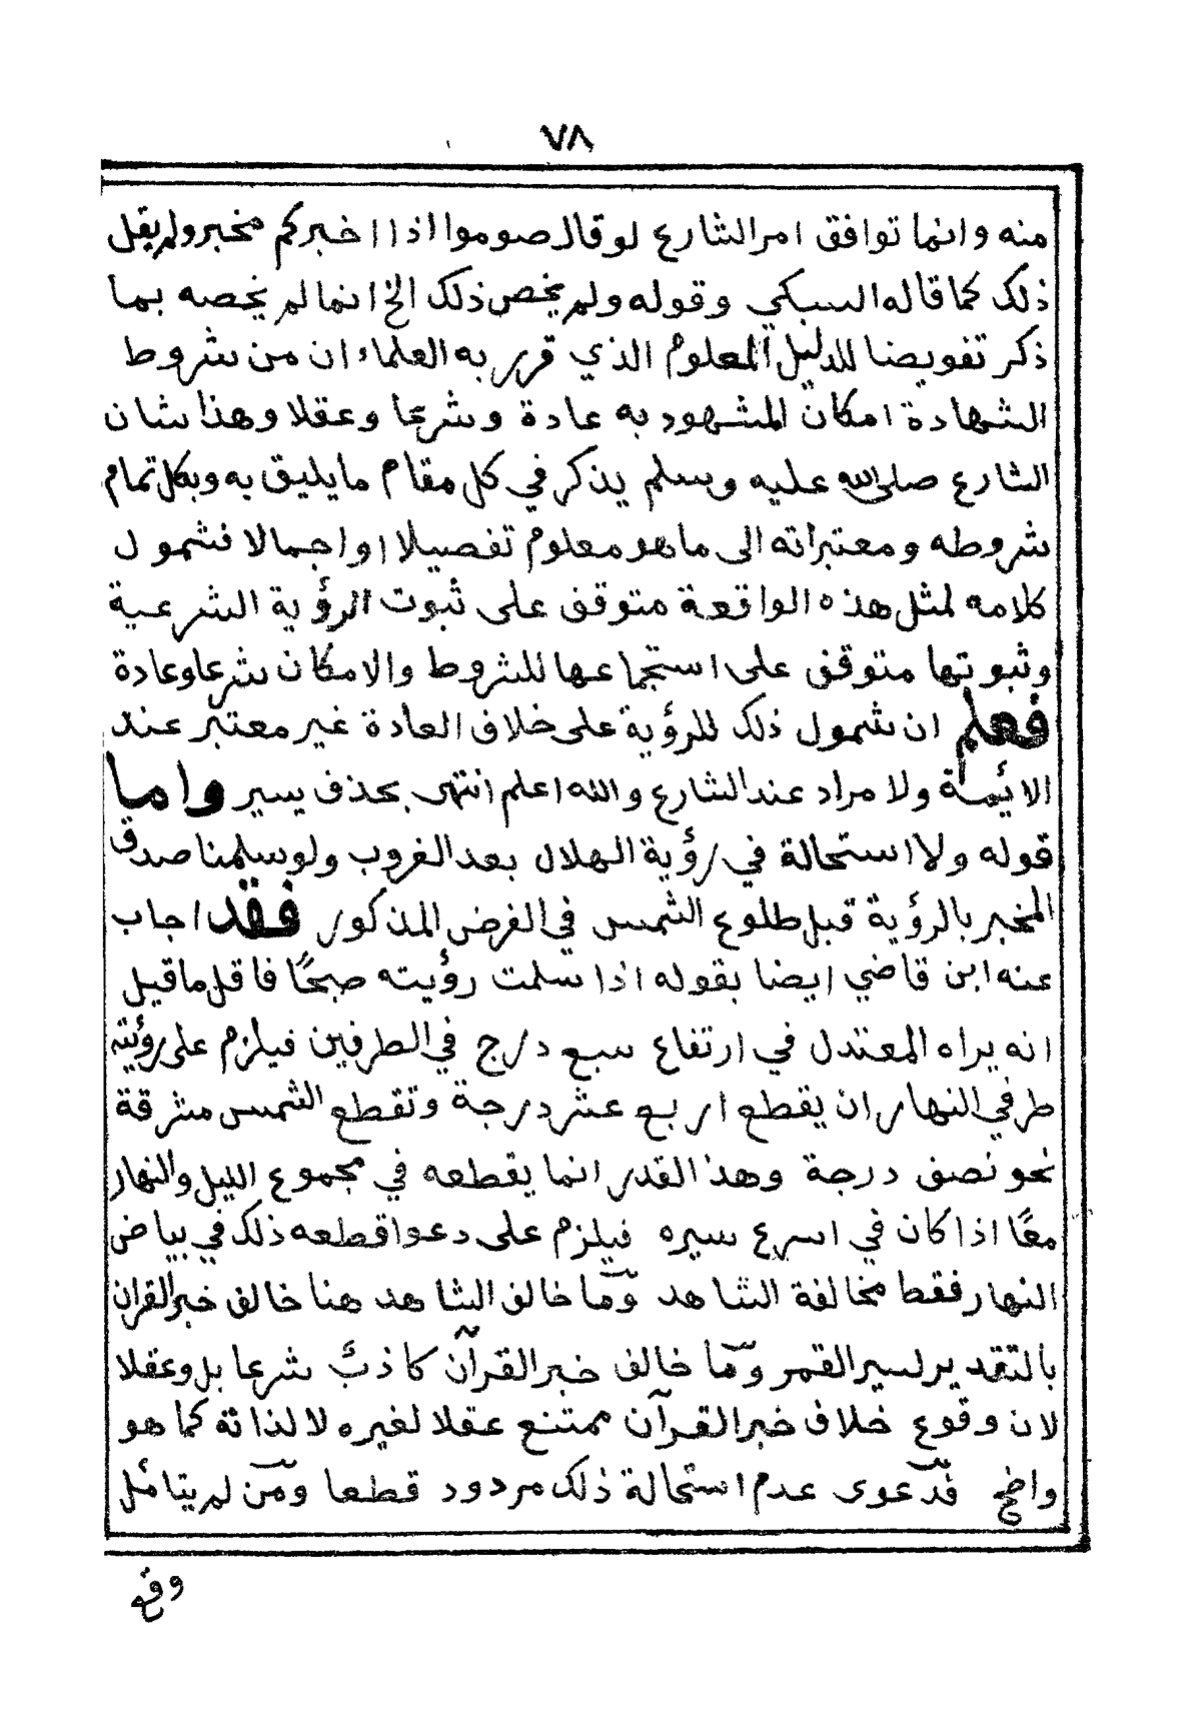 ٧٨
منه وانما توافق امر الشارع لو قال صوموا اذا اخبركم مخبر ولم يقل
ذلك كما قاله السبكي وقوله ولم يخص ذلك الخ انما لم يخصه بما
ذكر تفويضا للدليل المعلوم الذي قرر به العلماء ان من شروط
الشهادة امكان المشهود به عادة وشرعا وعقلا وهذا شان
الشارع صلى الله عليه وسلم يذكر في كل مقام ما يليق به ويكل تمام
شروطه ومعتبراته الى ما هو معلوم تفصيلا او اجمالا فشمول
كلامه لمثل هذه الواقعة متوقف على ثبوت الرؤية الشرعية
وثبوتها متوقف على استجماعها للشروط والامكان شرعا وعادة
فعلم ان شمول ذلك للرؤية على خلاف العادة غير معتبر عند
الائمة ولا مراد عند الشارع والله اعلم انتهى بحذف يسير واما
قوله ولا استحالة في رؤية الهلال بعد الغروب ولو سلمنا صدق
المخبر بالرؤية قبل طلوع الشمس في الفرض المذكور فقد اجاب
عنه ابن قاضي ايضا بقوله اذا سلمت رؤيته صبحًا فاقل ما قيل
انه يراه المعتدل في ارتفاع سبع درج في الطرفين فيلزم على رؤيته
طرفي النهار ان يقطع اربع عشر درجة وتقطع الشمس مشرقة
نحو نصف درجة وهذا القدر انما يقطعه في مجموع الليل والنهار
معًا اذا كان في اسرع سيره فيلزم على دعوا قطعه ذلك في بياض
النهار فقط مخالفة الشاهد وما خالف الشاهد هنا خالف خبر القران
بالتقدير لسير القمر وما خالف خبر القرآن كاذب شرعا بل وعقلا
لان وقوع خلاف خبر القرآن ممتنع عقلا لغيره لا لذاته كما هو
واضح فدعوى عدم استحالة ذلك مردود قطعا ومن لم يتأمل
وقع